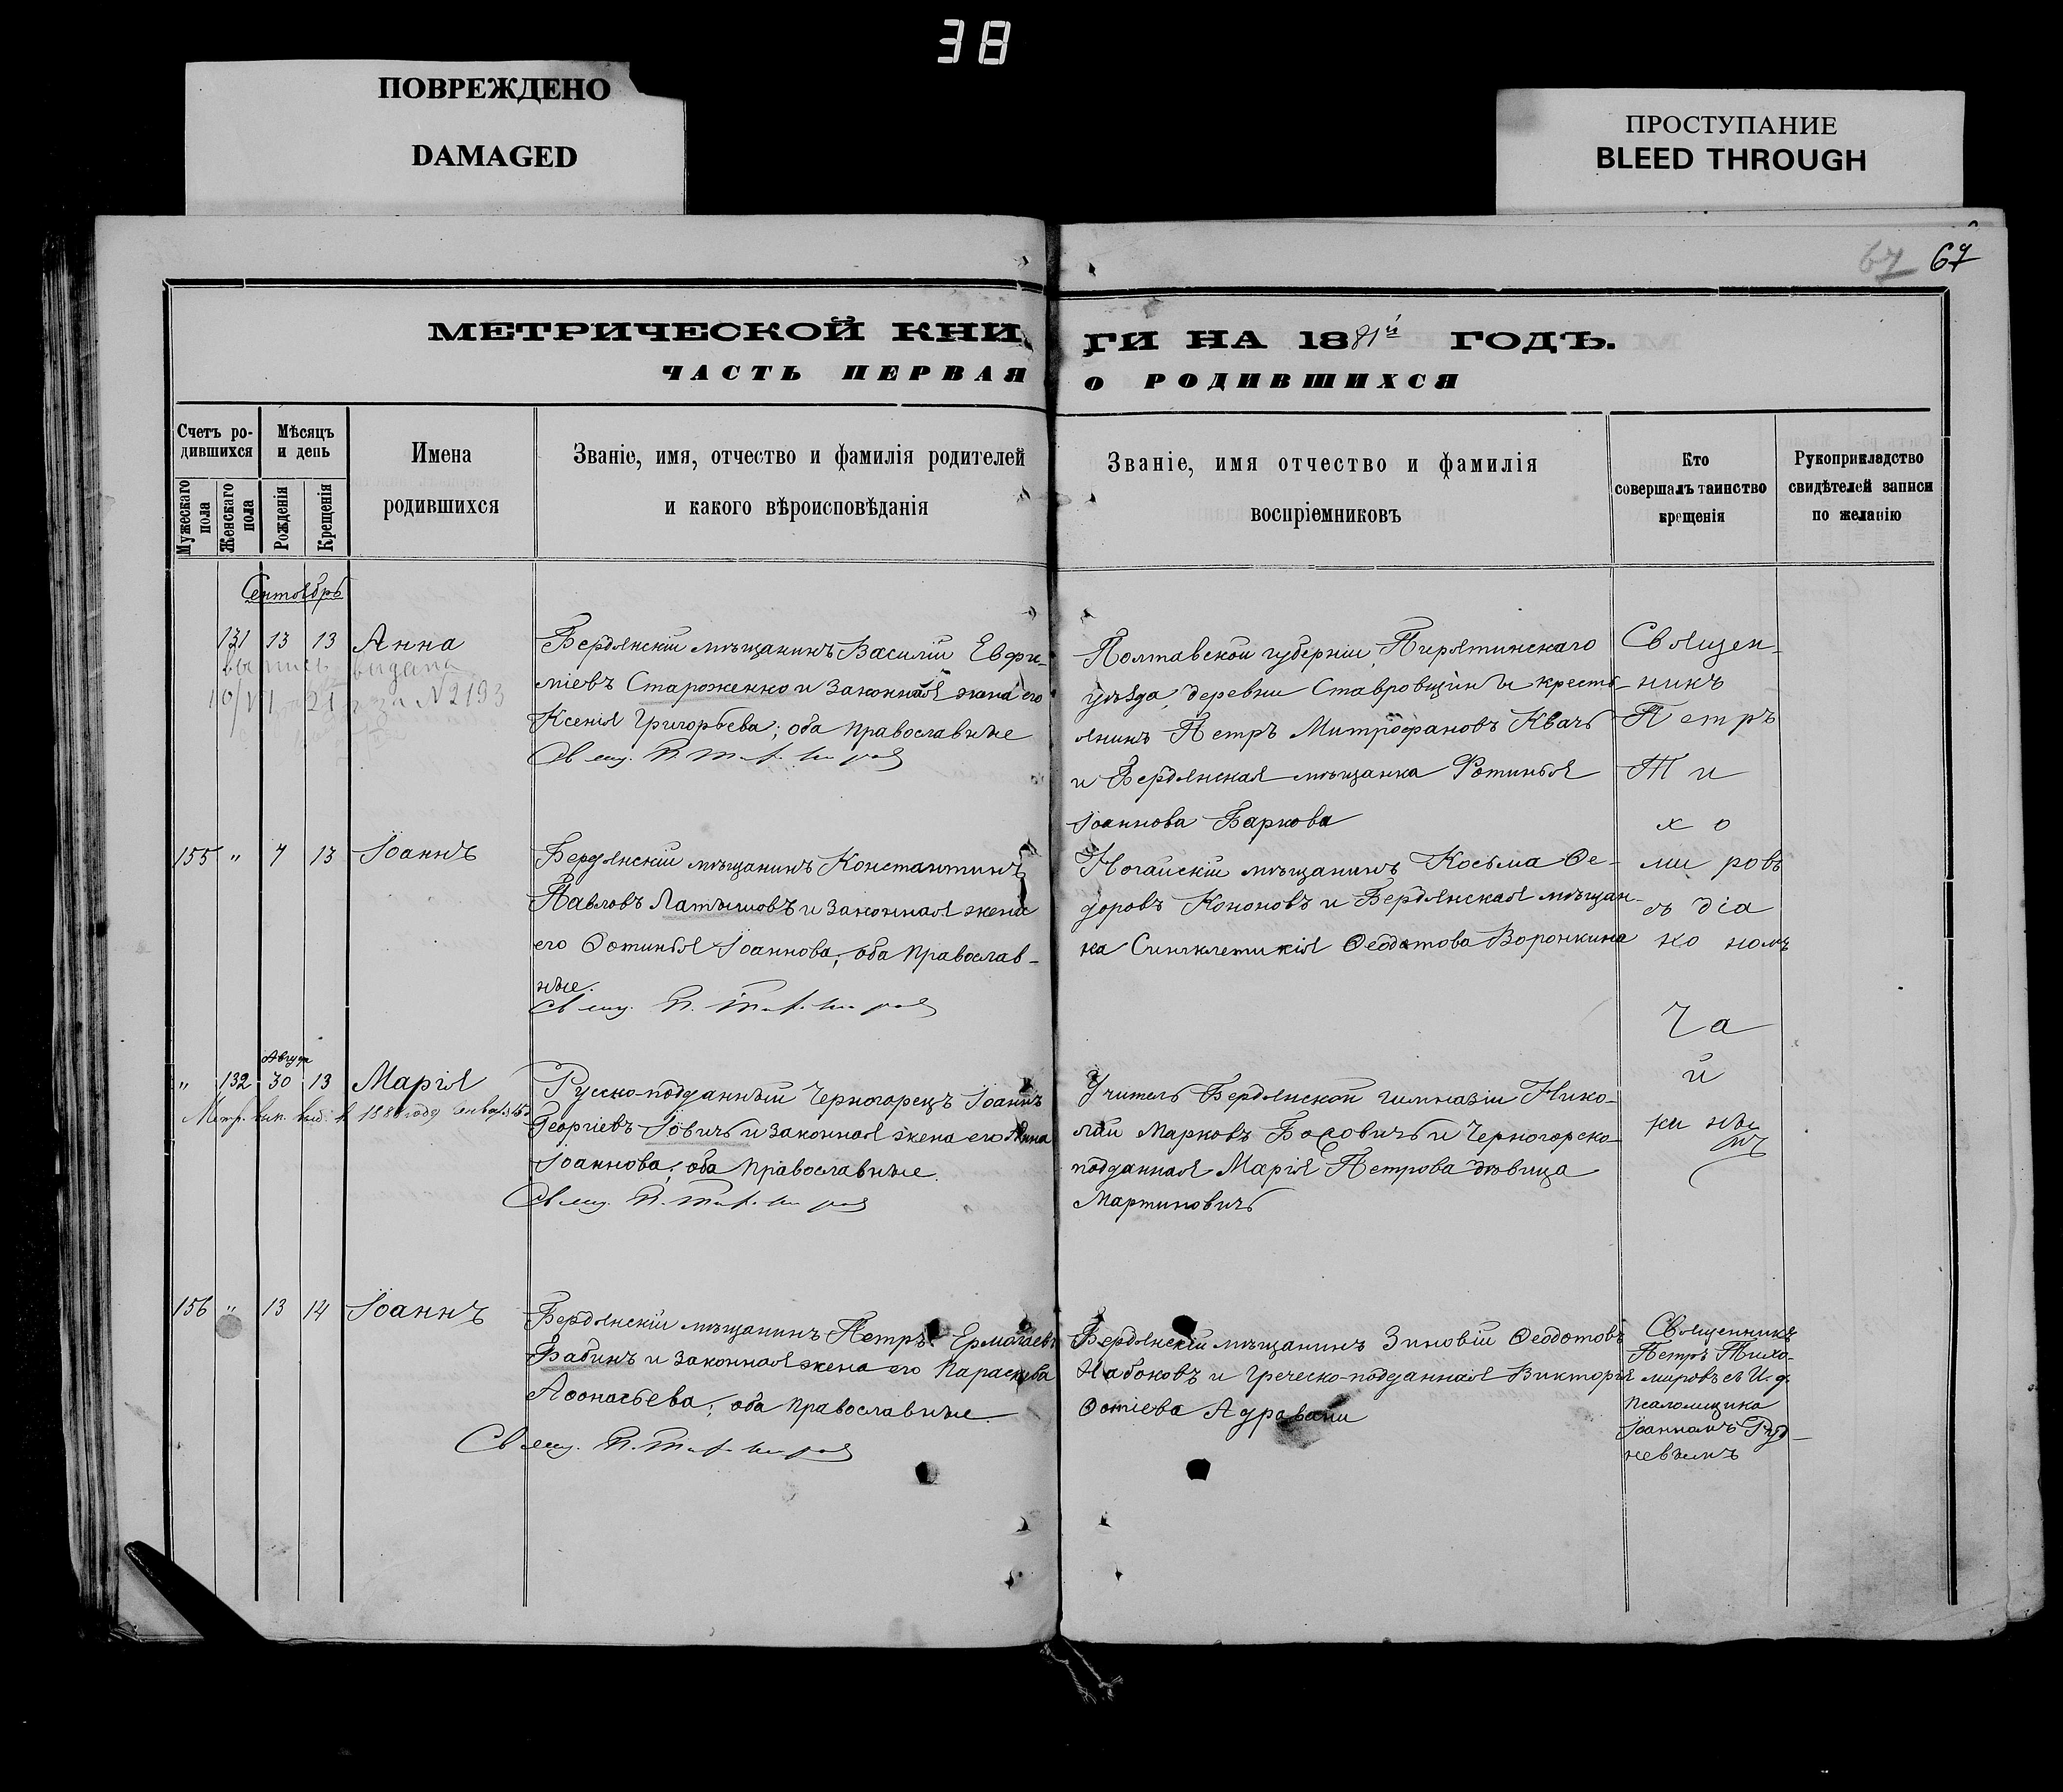 38
ПОВРЕЖДЕНО
DAMAGED
ПРОСТУПАНИЕ
BLEED THROUGH
67 67
МЕТРИЧЕСКОЙ КНИ
ГИ НА 1881й ГОДЪ.
ЧАСТЬ ПЕРВАЯ
О РОДИВШИХСЯ
Счетъ ро-
дившихся
Мужескаго пола
Женскаго пола
Мѣсяцъ
и день
Рожденія
Крещенія
Имена
родившихся
Званіе, имя, отчество и фамилія родителей
и какого вѣроисповѣданія
Званіе, имя отчество и фамилія
воспріемниковъ
Кто
совершалъ таинство
крещенія
Рукоприкладство
свидѣтелей записи
по желанію
Сентябрь
131 13 13 Анна
выпись выдана
10/VI 21 г за №2193
Бердянскій мѣщанинъ Василій Евфи-
міевъ Староженко и законная жена его
Ксенія Григорьева; оба православные
Свящ. П. Тихомировъ
Полтавской губерніи, Пирятинскаго
уѣзда, деревни Ставровщины кресть-
янинъ Петръ Митрофановъ Квачъ
и Бердянская мѣщанка Фотинья
Іоаннова Баркова
Священ-
никъ
Петръ
Ти
хо
ми ровъ
съ діа
ко номъ
Ча
й
ки нымъ
155 " 7 13 Іоаннъ
Бердянскій мѣщанинъ Константинъ
Павловъ Латышовъ и законная жена
его Ѳотинья Іоаннова; оба православ-
ные.
Свящ. П. Тихомировъ
Ногайскій мѣщанинъ Косьма Ѳе-
доровъ Кононовъ и Бердянская мѣщан-
ка Синклетикія Ѳеодотова Воронкина
Август
" 132 30 13 Марія
Метр. вып. выд. в 188 году
Русско-подданный Черногорецъ Іоаннъ
Георгіевъ Іовичъ и законная жена его Анна
Іоаннова; оба православные.
Свящ. П. Тихомировъ
Учитель Бердянской гимназіи Нико-
лай Марковъ Босовичъ и Черногорско-
подданная Марія Петрова дѣвица
Мартиновичъ
156 " 13 14 Іоаннъ
Бердянскій мѣщанинъ Петръ Ермолаевъ
Бабинъ и законная жена его Параскева
Аѳонасьева; оба православные
Свящ. П. Тихомировъ
Бердянскій мѣщанинъ Зиновій Ѳеодотовъ
Набоковъ и Греческо-подданная Викторія
Ѳотіева Адравани
Священникъ
Петръ Тихо-
мировъ съ И. д.
псаломщика
Іоанномъ Руд-
невымъ